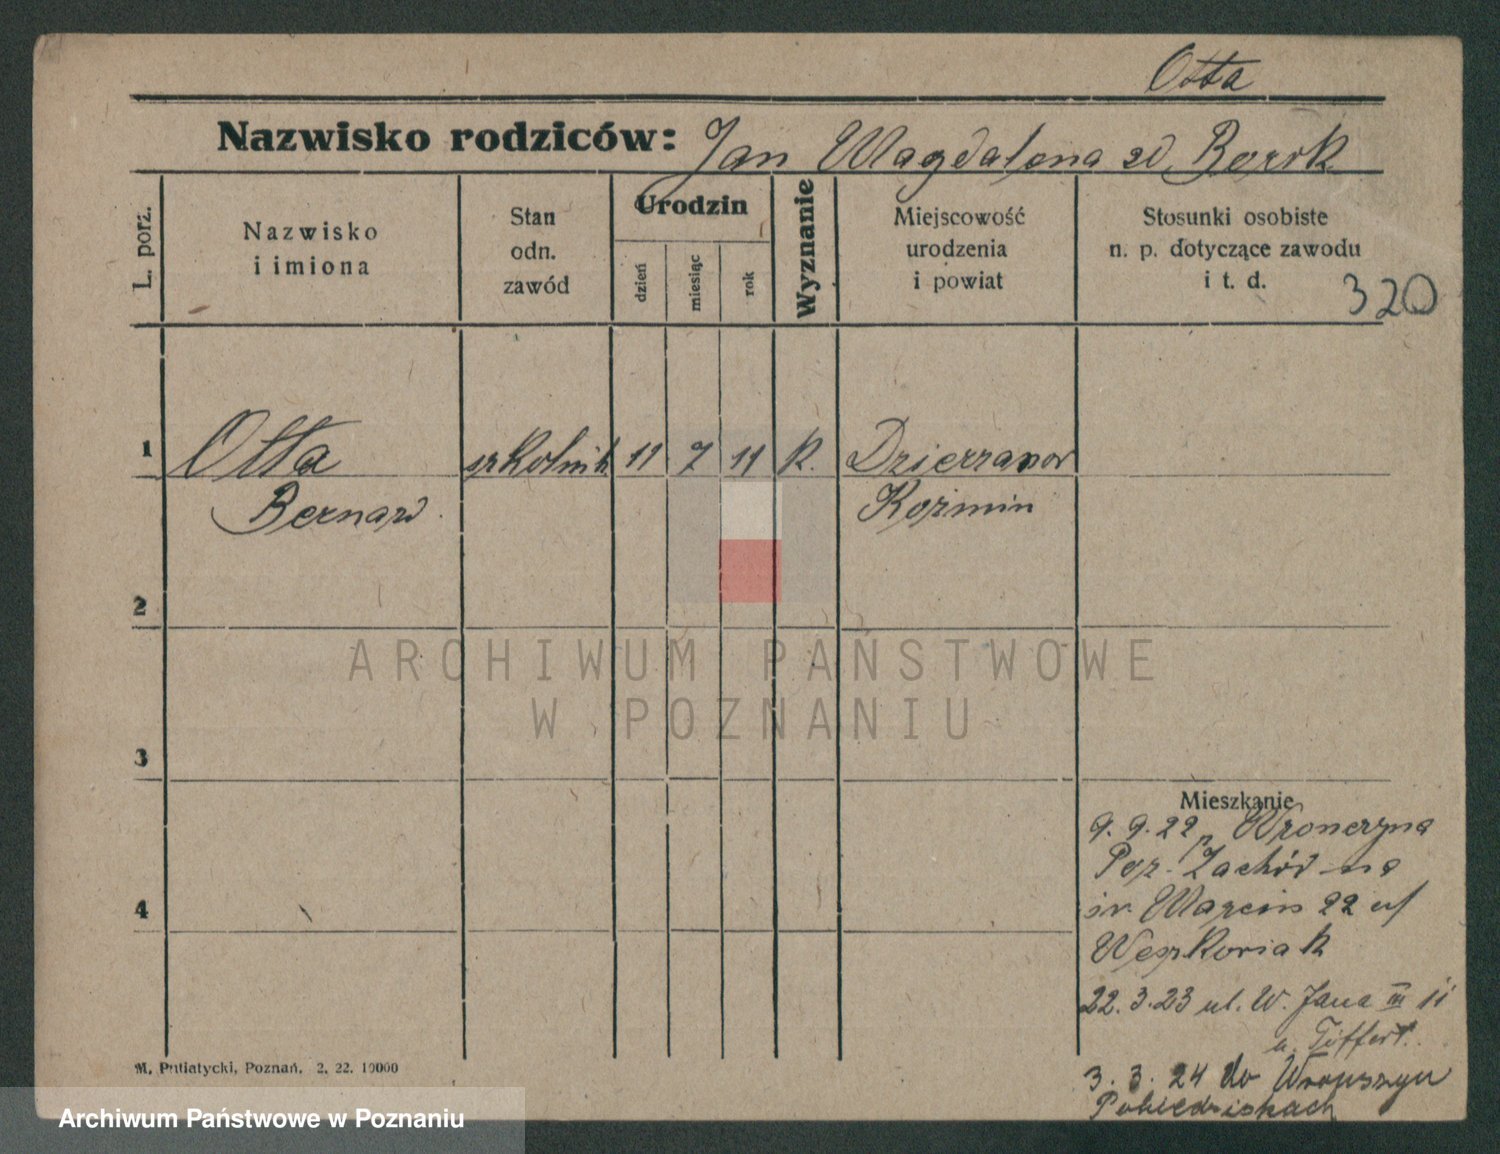 Otta
Nazwisko rodziców: Jan Magdalena zd Borck
L. porz.
Nazwisko
i imiona
Stan
odn.
zawód
Urodzin
dzień
miesiąc
rok
Wyznanie
Miejscowość
urodzenia
i powiat
Stosunki osobiste
n. p. dotyczące zawodu
i t. d.
320
1 Otta szkolnik 11 7 11 k.
Bernard Koźmin
2
ARCHIWUM PAŃSTWOWE
W POZNANIU
3
Mieszkanie
9. 9. 22 Wronczyna
Poz. Zachód na
św. Marcin 22 u/
4
22. 3. 23 ul. W. Jana III 11
3. 3. 24 do
Pobiedziskach
M. Putiatycki, Poznań. 2. 22. 10000
Archiwum Państwowe w Poznaniu